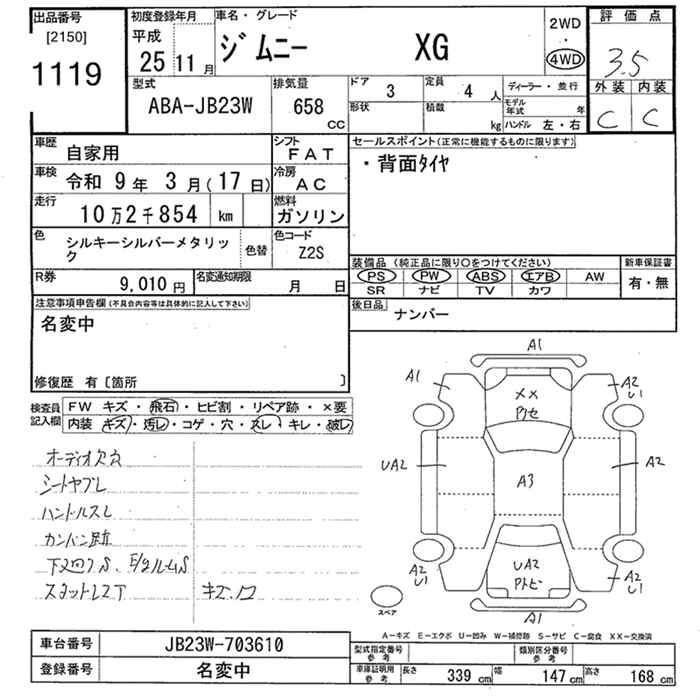 出品番号
[2150]
1119
初度登録年月
平成
25 11月
車名・グレード
ジムニー XG
2WD
・
4WD
評価点
3.5
外装 内装
C C
型式
ABA-JB23W
排気量
658
CC
ドア 3
定員 4 人
形状
積載 kg
ディーラー・並行
モデル年式 年
ハンドル 左・右
車歴
自家用
シフト
FAT
車検
令和 9年 3月(17日)
冷房
AC
走行
10万2千854 km
燃料
ガソリン
色
シルキーシルバーメタリック
色替
色コード
Z2S
R券
9,010円
名変通知期限
月 日
セールスポイント(正常に機能するものに限ります)
・背面タイヤ
装備品(純正品に限り○をつけてください)
PS PW ABS エアB AW
SR ナビ TV カワ
新車保証書
有・無
後日品
ナンバー
注意事項申告欄(不具合内容等は具体的に記入して下さい)
名変中
修復歴 有〔箇所 〕
検査員
記入欄
FW キズ・飛石・ヒビ割・リペア跡・×要
内装 キズ・汚レ・コゲ・穴・スレ・キレ・破レ
オーディオ欠品
シートヤブレ
ハンドルスレ
カンバン跡
スタットレス
A1
A1
A2
U1
××
UA2
A3
A2
UA2
A2
U1
A2
U1
A1
スペア
A−キズ E−エクボ U−凹み W−補修跡 S−サビ C−腐食 XX−交換済
車台番号
JB23W-703610
登録番号
名変中
型式指定番号
参考
類別区分番号
参考
車庫証明用
参考
長さ 339 cm 幅 147 cm 高さ 168 cm